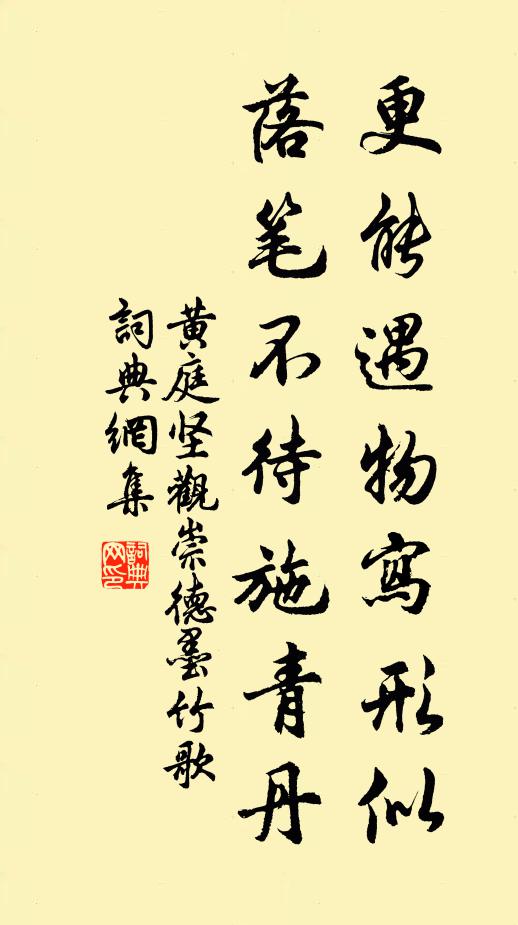 更能遇物寫形似
落笔不待施青丹
黄庭坚觀崇德墨竹歌
詞典網集
詞典网印